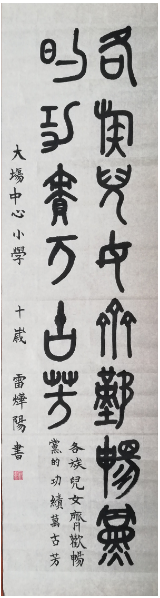 各族兒女齊歡暢黨
的功績万古芳
各族兒女齊歡暢
黨的功績萬古芳
大場中心小學 十歲 雷燁陽書